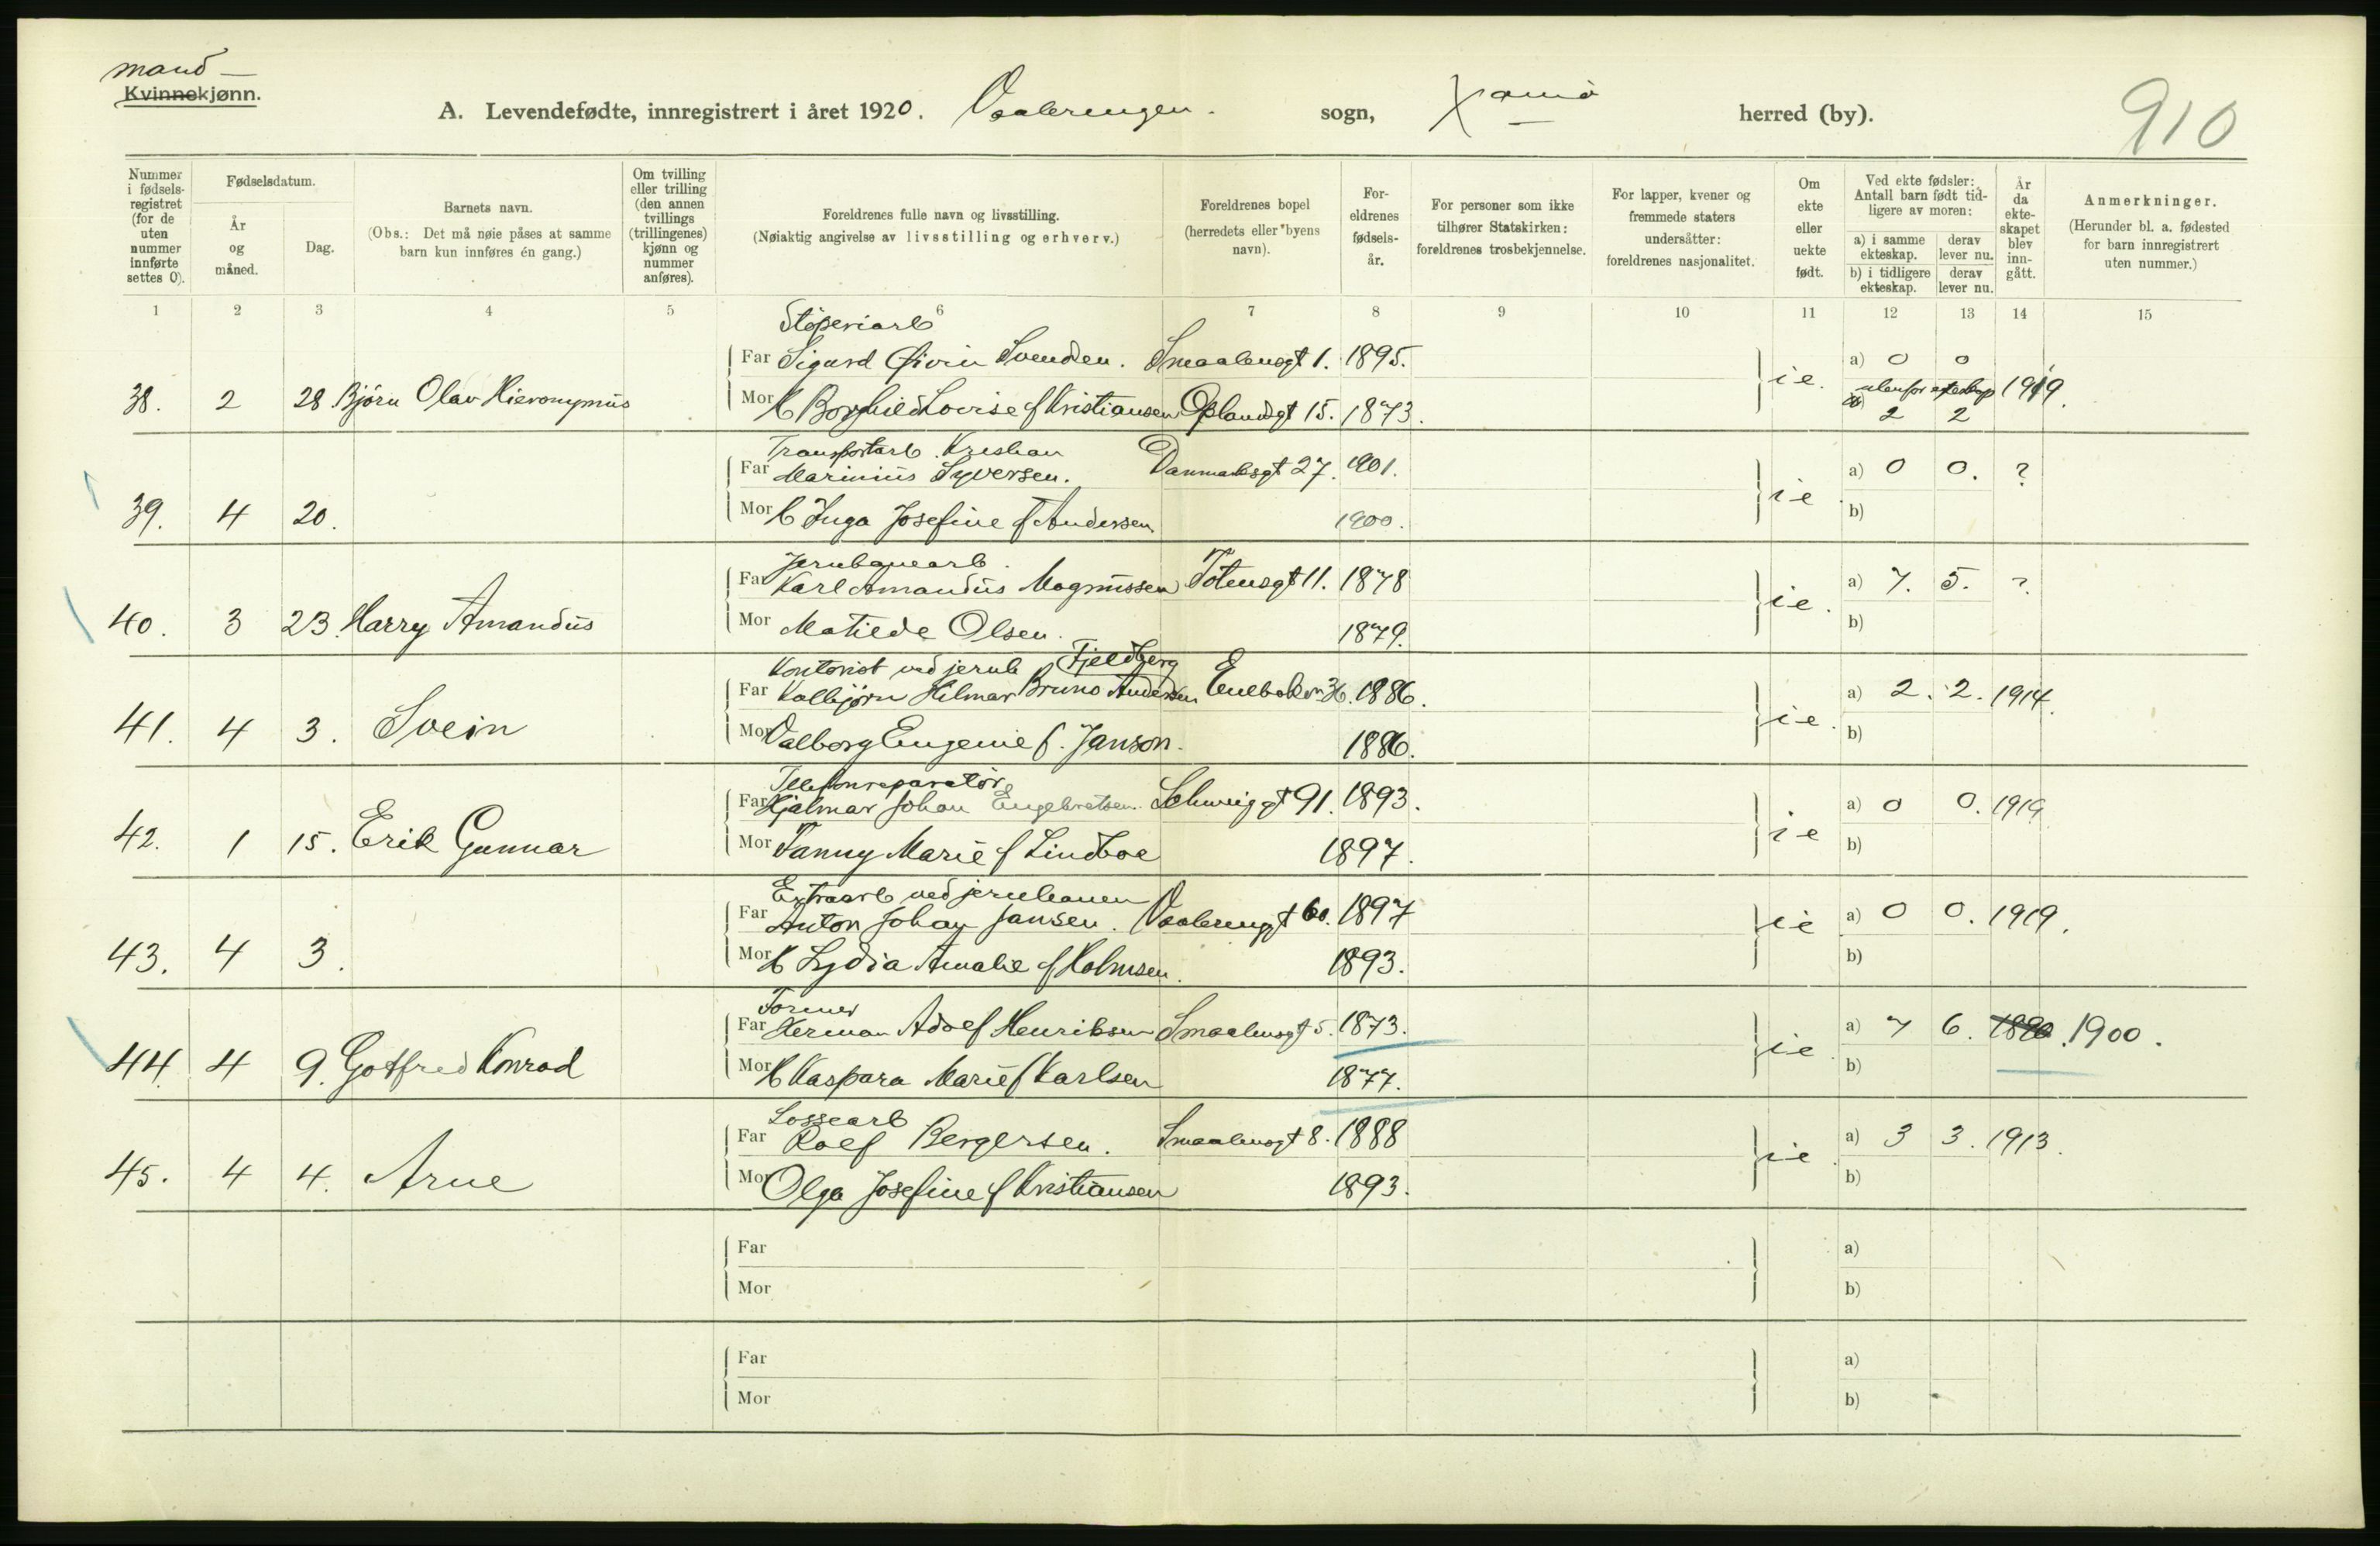 mand —
Kvinnekjønn.
A. Levendefødte, innregistrert i året 1920. Vaalerengen. sogn, Xania herred (by).
910
Nummer i fødsels-registret (for de uten nummer innførte settes 0).
Fødselsdatum.
År og måned.
Dag.
Barnets navn.
(Obs.: Det må nøie påses at samme barn kun innføres én gang.)
Om tvilling eller trilling (den annen tvillings (trillingenes) kjønn og nummer anføres).
Foreldrenes fulle navn og livsstilling.
(Nøiaktig angivelse av livsstilling og erhverv.)
Foreldrenes bopel (herredets eller byens navn).
For-eldrenes fødsels-år.
For personer som ikke tilhører Statskirken: foreldrenes trosbekjennelse.
For lapper, kvener og fremmede staters undersåtter: foreldrenes nasjonalitet.
Om ekte eller uekte født.
Ved ekte fødsler: Antall barn født tid-ligere av moren:
a) i samme ekteskap. derav lever nu.
b) i tidligere ekteskap. derav lever nu.
År da ekte-skapet blev inn-gått.
Anmerkninger.
(Herunder bl. a. fødested for barn innregistrert uten nummer.)
1 2 3 4 5 6 7 8 9 10 11 12 13 14 15
Støperiarb
Far Sigurd Øivin Svendsen. Smaalensgt 1. 1895. a) 0 0
38. 2 28 Bjørn Olav Hieronymus i e. utenfor ekteskap 1919.
Mor H Borghild Lovise f Kristiansen Oplandsgt 15. 1873. b) 2 2
Transportarb. Kristian
Far Marinius Syversen. Danmarksgt 27. 1901. a) 0 0. ?
39. 4 20. i e
Mor H Inga Josefine f Andersen 1900. b)
Jernbanearb.
Far Karl Amandus Magnussen Totensgt 11. 1878 a) 7. 5. ?
40. 3 23. Harry Amandus i e.
Mor Matilde Olsen. 1879. b)
Kontorist ved jernb Fjeldberg
Far Kolbjørn Hilmar Bruno Andersen Enebakvn 36. 1886. a) 2. 2. 1914.
41. 4 3. Svein i e.
Mor Valborg Eugenie f. Janson. 1886. b)
Telefonreparatør
Far Hjalmar Johan Engebretsen. Schweigg gt 91. 1893. a) 0 0. 1919
42. 1 15. Erik Gunnar i e
Mor Fanny Marie f Lindboe 1897. b)
Extraarb ved jernbanen
Far Anton Johan Jansen. Vaalerenggt 60. 1897 a) 0 0. 1919.
43. 4 3. i e
Mor H Lydia Amalie f Holmsen. 1893. b)
Former
Far Herman Adolf Henriksen Smaalensgt 5. 1873. a) 7 6. 1890. 1900.
44. 4 9. Gotfred Konrad i e.
Mor H Kaspara Marie f Karlsen 1877. b)
Lossearb
Far Rolf Bergersen. Smaalensgt 8. 1888 a) 3 3. 1913.
45. 4 4. Arne i e.
Mor Olga Josefine f Kristiansen 1893. b)
Far a)
Mor b)
Far a)
Mor b)